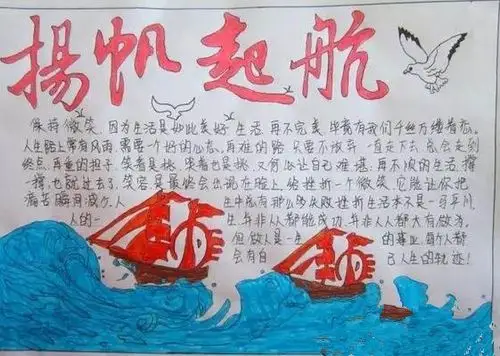 揚帆起航
保持微笑,因为生活是如此美好生活,再不完美,毕竟有我们千丝万缕着恋。
人生路上常有风雨,需要一个好的心态,再难的路只要不放弃一直走下去,总会走到
终点,再重的担子,笑着是挑,哭着也是挑,又何必让自己难堪;再不顺的生活,撑一
撑,也就过去了,笑容是最终会出现在脸上,给挫折一个微笑,它能让你把
痛苦瞬间 人生中能有那么多失败挫折生活本不是一马平川
人的一生,并非人人都能成功,并非人人都大有做为。
但做人是一生的事业,每个人都
会有自己人生的轨迹!